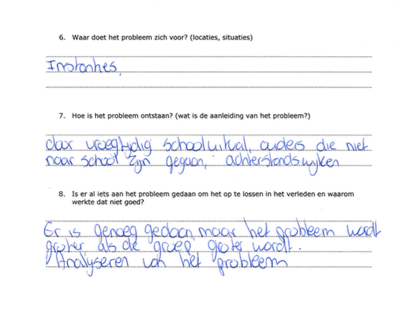 6. Waar doet het probleem zich voor? (locaties, situaties)
Instanties,
7. Hoe is het probleem ontstaan? (wat is de aanleiding van het probleem?)
door vroegtijdig schooluitval, ouders die niet
naar school zijn gegaan, achterstandswijken
8. Is er al iets aan het probleem gedaan om het op te lossen in het verleden en waarom
werkte dat niet goed?
Er is genoeg gedaan, maar het probleem wordt
groter als de groep groter wordt.
Analyseren van het probleem